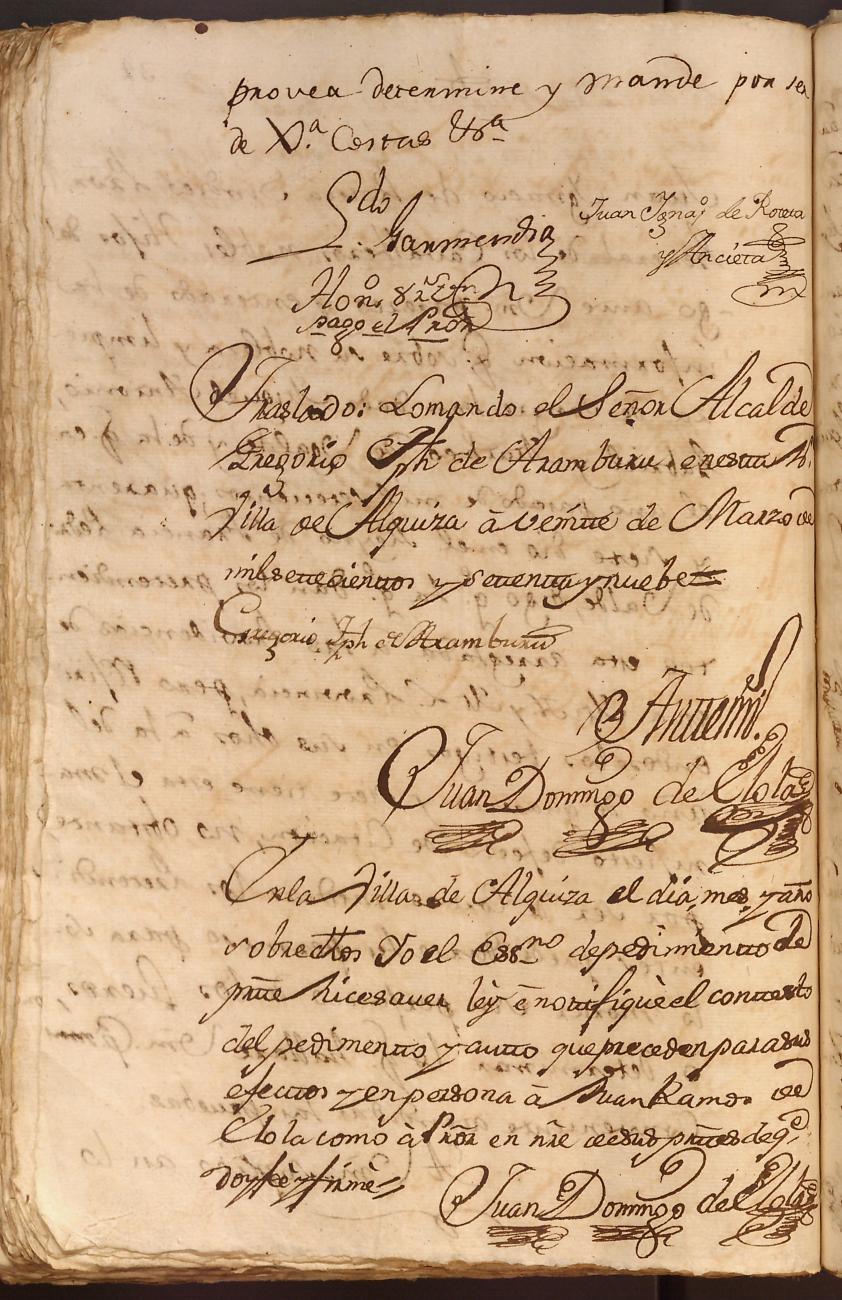 provea determine y mande por ser
de Xª Costas &ª
Ldo Garmendia
Juan Ignaº de
y Ancieta
Honº 8 rˢ
pago el Pror
Traslado: Lomando el Señor Alcalde
Gregorio Jph de Aramburu, enesta N.
Villa de Alquiza à veinte de Marzo de
mil setecientos y setenta y nuebe =
Gregorio Jph de Aramburu
Antemi
Juan Domingo de Elola
Enla Villa de Alquiza el dia, mes, y año
sobredhos Yo el Essno de pedimiento de
prte hice saver, leý è notifiquè el contexto
del pedimento y autto que preceden para sus
efectos y en persona à Juan Ramos de
Elola como à Pror en nre de sus prtes de qe
doy feè y firmè =
Juan Domingo de Elola